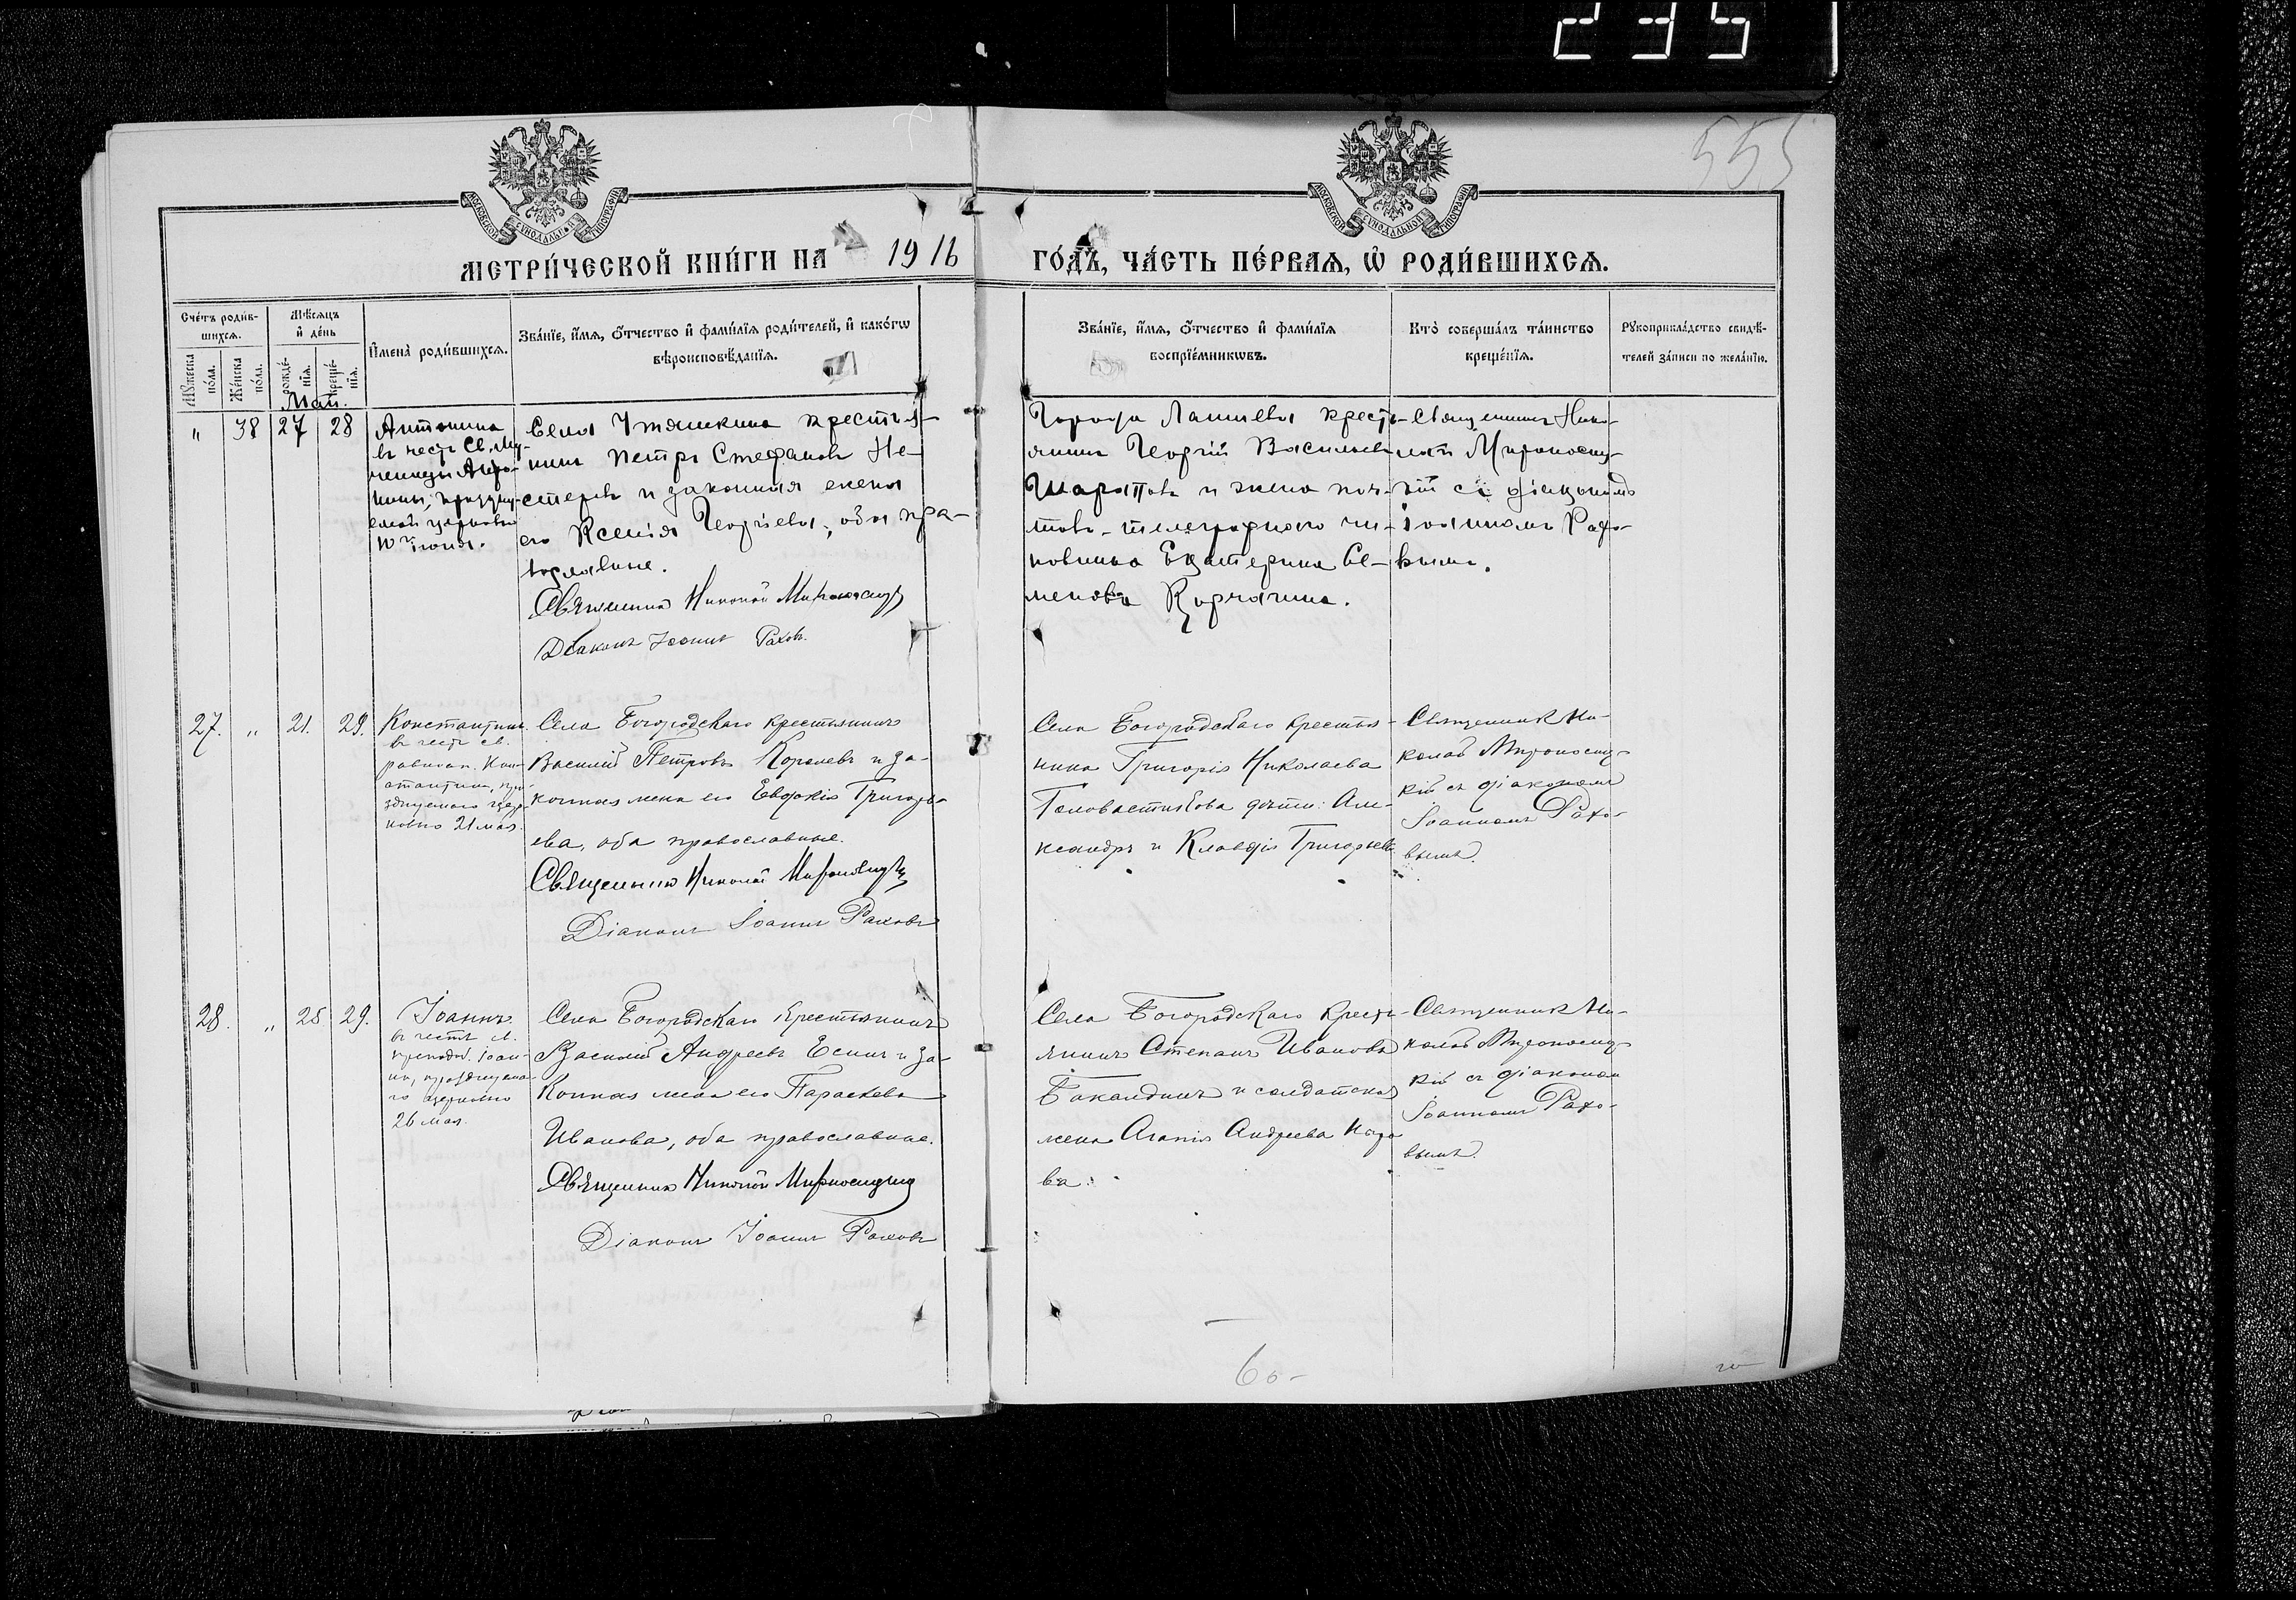 235
555
МОСКОВСКОЙ СУНОДАЛЬНОЙ ТИПОГРАФІИ
МОСКОВСКОЙ СУНОДАЛЬНОЙ ТИПОГРАФІИ
МЕТРИ́ЧЕСКОЙ КНИ́ГИ НА 1916 ГО́ДЪ, ЧА́СТЬ ПЕ́РВАѦ, Ѿ РОДИ́ВШИХСѦ.
Сче́тъ роди́в-
шихсѧ.
Мѣ́сѧцъ
и҆ де́нь
Мꙋ́жеска
по́ла.
Же́нска
по́ла.
рожде́-
нїѧ.
креще́-
нїѧ.
И҆мена̀ роди́вшихсѧ.
Зва́нїе, и҆́мѧ, ѻ҆́тчество и҆ фами́лїѧ роди́телей, и҆ како́гѡ
вѣроисповѣ́данїѧ.
Зва́нїе, и҆́мѧ, ѻ҆́тчество и҆ фами́лїѧ
воспрїе́мникѡвъ.
Кто̀ соверша́лъ та́инство
креще́нїѧ.
Рꙋкоприкла́дство свидѣ́-
телей за́писи по жела́нїю.
Май.
" 38 27 28
Антонина
въ честь Св. Му-
ченицы Анто-
нины, празднуемой церковью
10го іюня.
Села Утяшкина крестья-
нинъ Петръ Стефановъ Не-
стеревъ и законная жена
его Ксенія Георгіева, оба пра-
вославные.
Священникъ Николай Мироносицкій
Діаконъ Іоаннъ Раховъ.
Города Лаишева кресть-
янинъ Георгій Васильевъ
Шараповъ и жена поч-
тово-телеграфнаго чи-
новника Екатерина Се-
менова Корчагина.
Священникъ Нико-
лай Мироносиц-
кій съ діакономъ
Іоанномъ Рахо-
вымъ.
27. " 21. 29.
Константинъ
въ честь св.
равноап. Кон-
стантина, пра-
зднуемаго цер-
ковью 21 мая.
Села Богородскаго крестьянинъ
Василій Петровъ Королевъ и за-
конная жена его Евдокія Григорь-
ева, оба православные.
Священникъ Николай Мироносицкій
Діаконъ Іоаннъ Раховъ
Села Богородскаго крестья-
нина Григорія Николаева
Головастикова дѣти: Але-
ксандръ и Клавдія Григорьевы.
Священникъ Ни-
колай Мироносиц-
кій съ діакономъ
Іоанномъ Рахо-
вымъ.
28. " 25 29.
Іоаннъ
въ честь св.
преподоб. Іоан-
на, празднуема-
го церковью
26 мая.
Села Богородскаго крестьянинъ
Василій Андреевъ Есинъ и за-
конная жена его Параскева
Иванова, оба православные.
Священникъ Николай Мироносицкій
Діаконъ Іоаннъ Раховъ
Села Богородскаго кресть-
янинъ Степанъ Ивановъ
Бакалдинъ и солдатская
жена Агапія Андреева
ва.
Священникъ Ни-
колай Мироносиц-
кій съ діакономъ
Іоанномъ Рахо-
вымъ.
60-